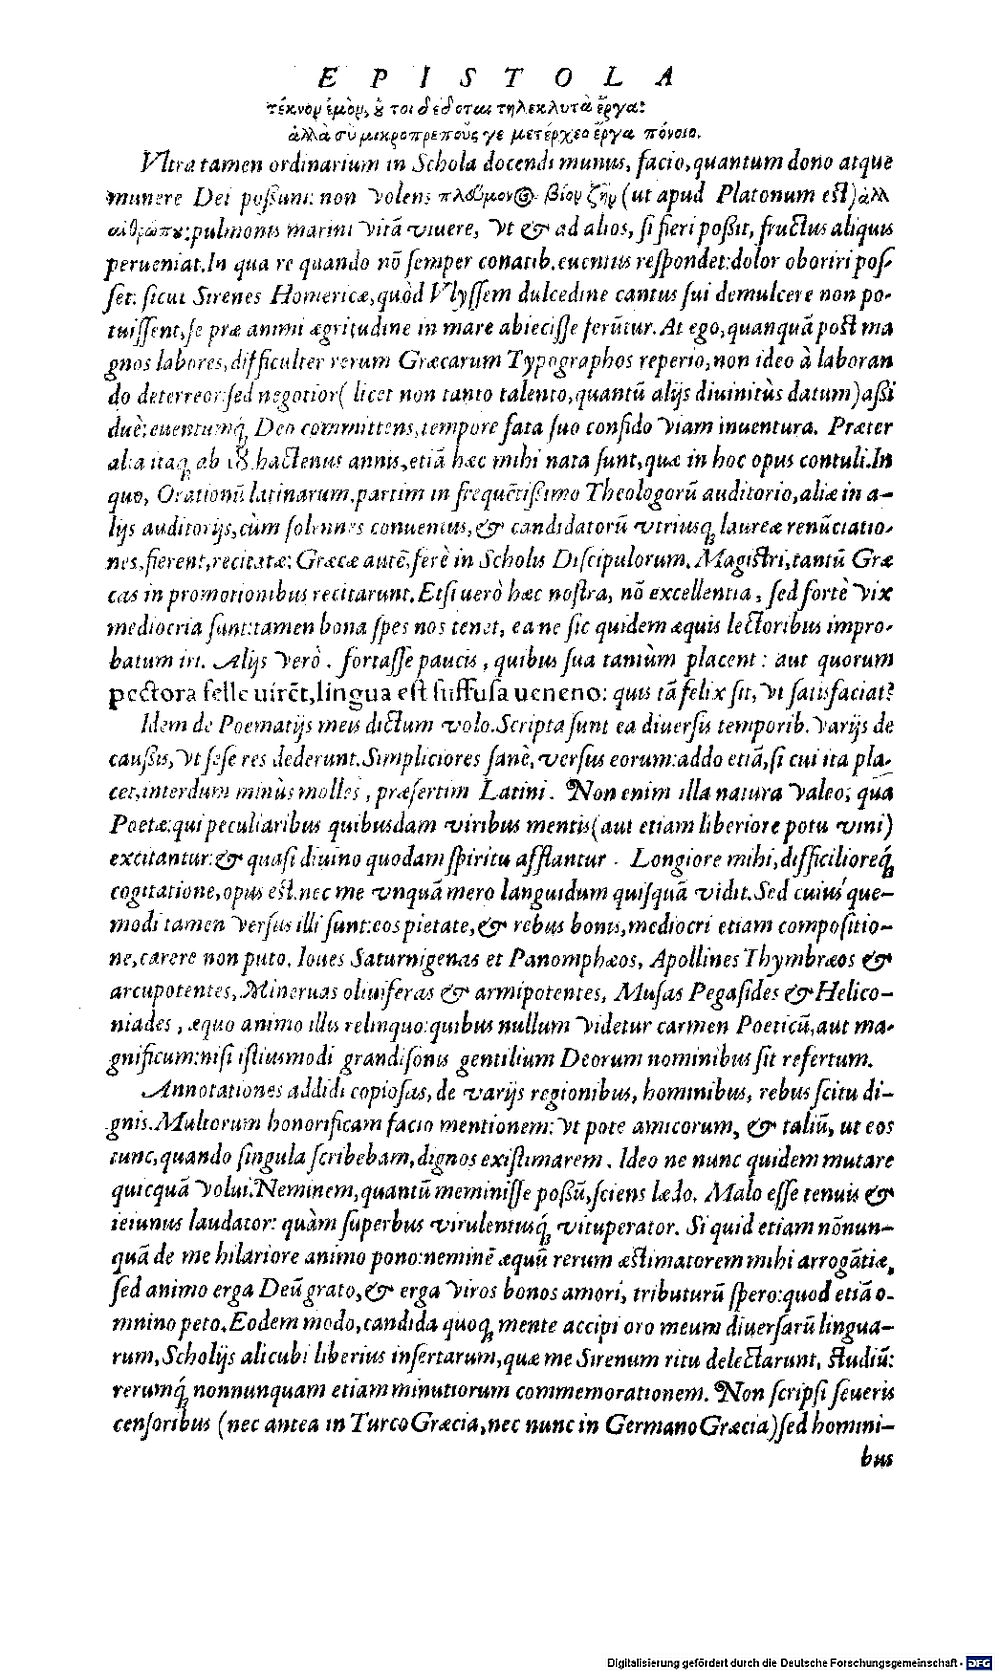 EPISTOLA
τέκνον ἐμὸν, ȣ̓ τοι δέδοται τηλεκλυτὰ ἔργα:
ἀλλὰ σὺ μικροπρεποῦς γε μετέρχεο ἔργα πόνοιο.
Vltra tamen ordinarium in Schola docendi munus, facio, quantum dono atque
munere Dei possum: non volens πλεύμονος βίον ζῆν (ut apud Platonum est) ἀλλ
αἰθρώπȣ: pulmonis marini vitā viuere, vt & ad alios, si fieri poßit, fructus aliquis
perueniat. In qua re quando nō semper conatib. euentus respondet: dolor oboriri pos-
set: sicut Sirenes Homericæ, quòd Vlyssem dulcedine cantus sui demulcere non po-
tuissent, se præ animi ægritudine in mare abiecisse ferūtur. At ego, quanquā post ma
gnos labores, difficulter rerum Græcarum Typographos reperio, non ideo à laboran
do deterreor: sed negotior (licet non tanto talento, quantū alijs diuinitùs datum) aßi
duè: euentumq́; Deo committens, tempore fata suo confido viam inuentura. Præter
alia itaq; ab 18. hactenus annis, etiā hæc mihi nata sunt, quæ in hoc opus contuli. In
quo, Orationū latinarum, partim in frequētißimo Theologorū auditorio, aliæ in a-
lijs auditorijs, cùm solennes conuentus, & candidatorū vtriusq; laureæ renūciatio-
nes, fierent, recitatæ: Græcæ autē, ferè in Scholis Discipulorum. Magistri, tantū Græ
cas in promotionibus recitarunt. Etsi uerò hæc nostra, nō excellentia, sed fortè vix
mediocria sunt: tamen bona spes nos tenet, ea ne sic quidem æquis lectoribus impro-
batum iri. Alijs verò, fortasse paucis, quibus sua tantùm placent: aut quorum
pectora felle uirēt, lingua est suffusa ueneno: quis tā felix sit, vt satisfaciat?
Idem de Poematijs meis dictum volo. Scripta sunt ea diuersis temporib. varijs de
caußis, vt sese res dederunt. Simpliciores sanè, versus eorum: addo etiā, si cui ita pla-
cet, interdum minùs molles, præsertim Latini. Non enim illa natura valeo, qua
Poetæ: qui peculiaribus quibusdam viribus mentis (aut etiam liberiore potu vini)
excitantur: & quasi diuino quodam spiritu afflantur. Longiore mihi, difficilioreq́;
cogitatione, opus est. nec me vnquā mero languidum quisquā vidit. Sed cuius que-
modi tamen versus illi sunt: eos pietate, & rebus bonis, mediocri etiam compositio-
ne, carere non puto. Ioues Saturnigenas et Panomphæos, Apollines Thymbræos &
arcupotentes, Mineruas oliuiferas & armipotentes, Musas Pegasides & Helico-
niades, æquo animo illis relinquo: quibus nullum videtur carmen Poeticū, aut ma-
gnificum: nisi istiusmodi grandisonis gentilium Deorum nominibus sit refertum.
Annotationes addidi copiosas, de varijs regionibus, hominibus, rebus scitu di-
gnis. Multorum honorificam facio mentionem: vt pote amicorum, & taliū, ut eos
tunc, quando singula scribebam, dignos existimarem. Ideo ne nunc quidem mutare
quicquā volui. Neminem, quantū meminisse possū, sciens lædo. Malo esse tenuis &
ieiunus laudator: quàm superbus virulentusq́; vituperator. Si quid etiam nōnun-
quā de me hilariore animo pono: neminē æquū rerum æstimatorem mihi arrogātiæ,
sed animo erga Deū grato, & erga viros bonos amori, tributurū spero: quod etiā o-
mnino peto. Eodem modo, candida quoq; mente accipi oro meum diuersarū lingua-
rum, Scholijs alicubi liberius insertarum, quæ me Sirenum ritu delectarunt, studiū:
rerumq́; nonnunquam etiam minutiorum commemorationem. Non scripsi seueris
censoribus (nec antea in TurcoGræcia, nec nunc in GermanoGræcia) sed homini-
bus
Digitalisierung gefördert durch die Deutsche Forschungsgemeinschaft - DFG